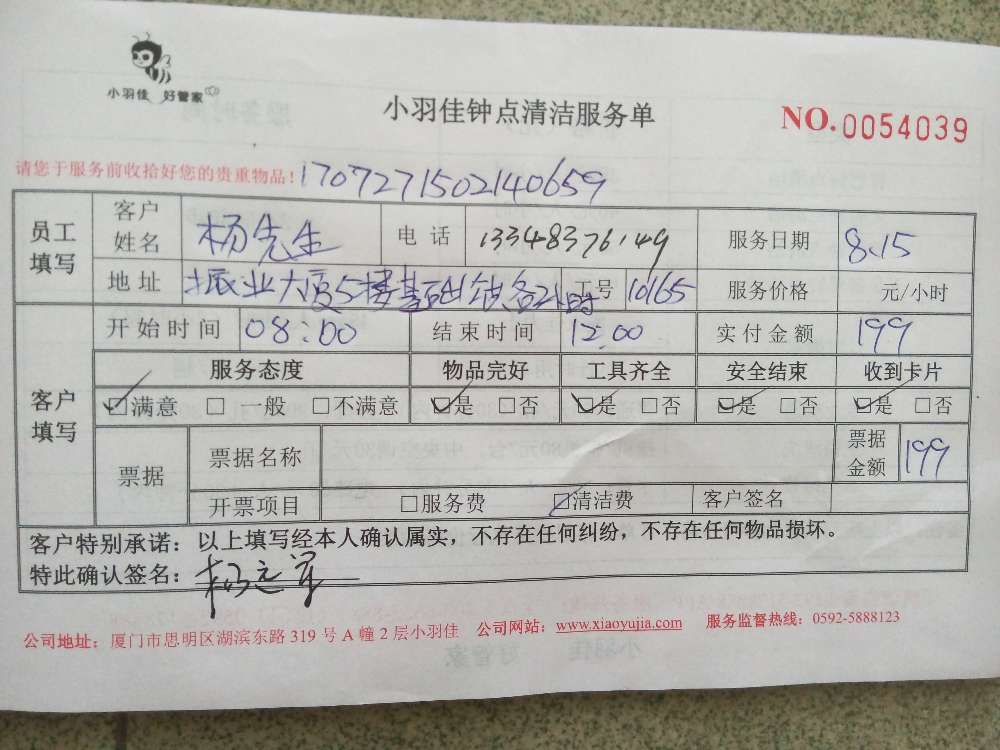 小羽佳 好管家
小羽佳钟点清洁服务单
NO.0054039
请您于服务前收拾好您的贵重物品!1707271502140659
员工填写 客户姓名 杨先生 电话 13348376149 服务日期 8.15
地址 振业大厦5楼 工号 10165 服务价格 元/小时
客户填写 开始时间 08:00 结束时间 12:00 实付金额 199
服务态度 物品完好 工具齐全 安全结束 收到卡片
☑满意 □一般 □不满意 ☑是 □否 ☑是 □否 ☑是 □否 ☑是 □否
票据 票据名称 票据金额 199
开票项目 □服务费 ☑清洁费 客户签名
客户特别承诺：以上填写经本人确认属实，不存在任何纠纷，不存在任何物品损坏。
特此确认签名：
公司地址：厦门市思明区湖滨东路 319 号 A 幢 2 层小羽佳 公司网站：www.xiaoyujia.com 服务监督热线：0592-5888123